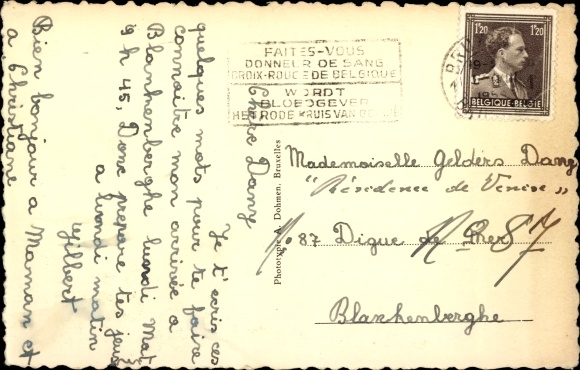 FAITES-VOUS
DONNEUR DE SANG
CROIX-ROUGE DE BELGIQUE
WORDT
BLOEDGEVER
HET RODE KRUIS VAN
1F20 1F20
BELGIQUE-BELGIE
Chère Dany
Je t'ecris ces
quelques mots pour te faire
connaitre mon arrivée a
Blankenberghe lundi Mat
9h 45. Donc prepare tes jeux
a lundi matin
Gilbert
Bien bonjour a Maman et
a Christiane
Phototypie A. Dohmen, Bruxelles
Mademoiselle Gelders Dany
"Résidence de Venise"
87 Digue de Mer
No 87
Blankenberghe